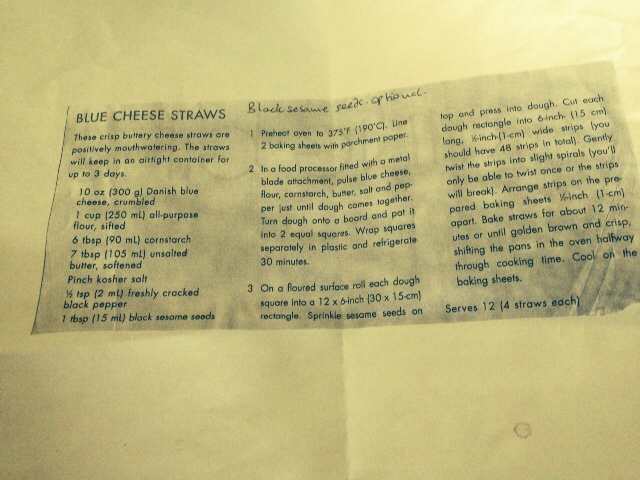 BLUE CHEESE STRAWS
These crisp buttery cheese straws are
positively mouthwatering. The straws
will keep in an airtight container for
up to 3 days.
10 oz (300 g) Danish blue
cheese, crumbled
1 cup (250 mL) all-purpose
flour, sifted
6 tbsp (90 mL) cornstarch
7 tbsp (105 mL) unsalted
butter, softened
Pinch kosher salt
½ tsp (2 mL) freshly cracked
black pepper
1 tbsp (15 mL) black sesame seeds
Black sesame seeds. optional.
1 Preheat oven to 375°F (190°C). Line
2 baking sheets with parchment paper.
2 In a food processor fitted with a metal
blade attachment, pulse blue cheese,
flour, cornstarch, butter, salt and pep-
per just until dough comes together.
Turn dough onto a board and pat it
into 2 equal squares. Wrap squares
separately in plastic and refrigerate
30 minutes.
3 On a floured surface roll each dough
square into a 12 x 6-inch (30 x 15-cm)
rectangle. Sprinkle sesame seeds on
top and press into dough. Cut each
dough rectangle into 6-inch (15 cm)
long, ½-inch-(1-cm) wide strips (you
should have 48 strips in total). Gently
twist the strips into slight spirals (you'll
only be able to twist once or the strips
will break). Arrange strips on the pre-
pared baking sheets ½-inch (1-cm)
apart. Bake straws for about 12 min-
utes or until golden brown and crisp,
shifting the pans in the oven halfway
through cooking time. Cool on the
baking sheets.
Serves 12 (4 straws each)